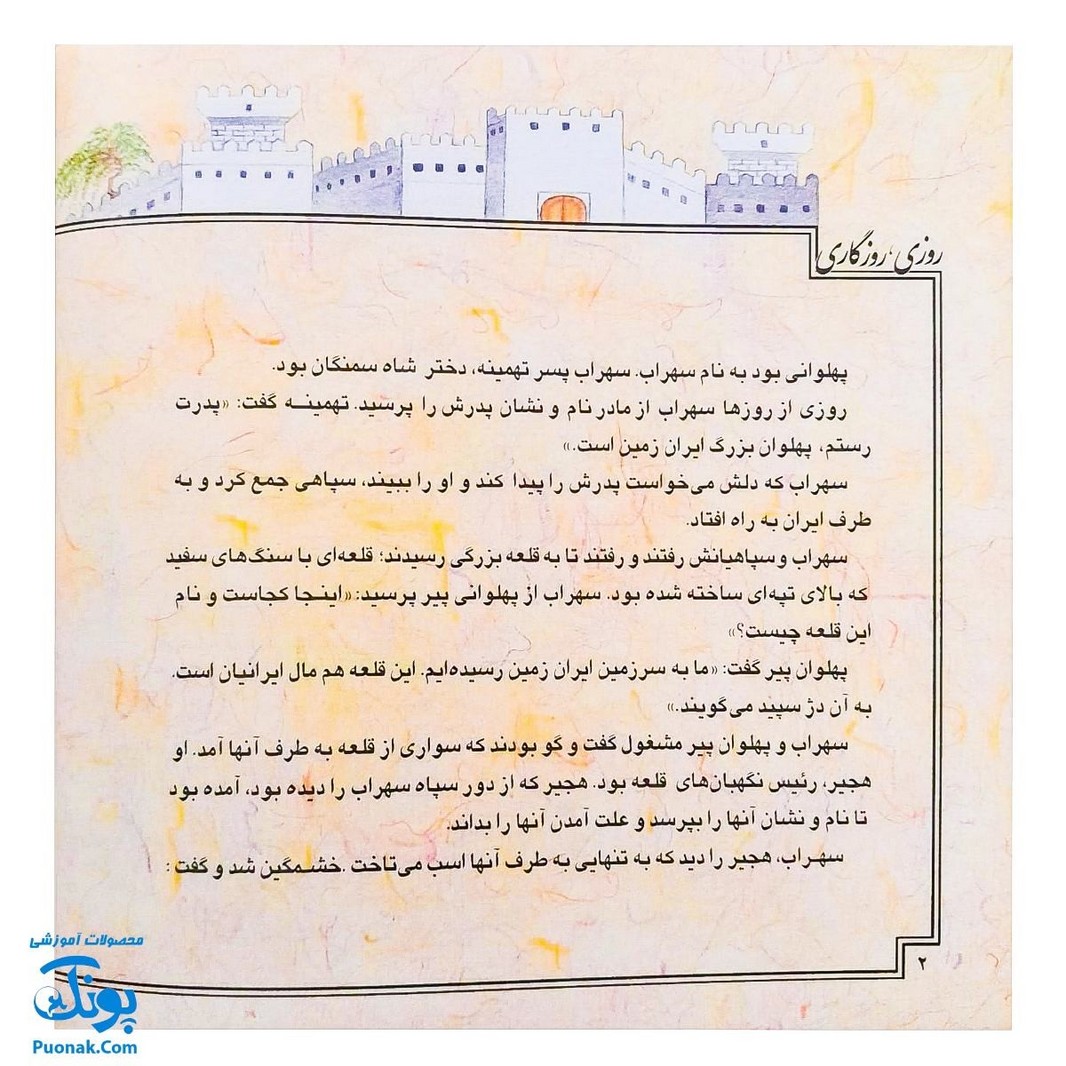 روزی، روزگاری
پهلوانی بود به نام سهراب. سهراب پسر تهمینه، دختر شاه سمنگان بود.
روزی از روزها سهراب از مادر نام و نشان پدرش را پرسید. تهمینه گفت: «پدرت
رستم، پهلوان بزرگ ایران زمین است.»
سهراب که دلش می‌خواست پدرش را پیدا کند و او را ببیند، سپاهی جمع کرد و به
طرف ایران به راه افتاد.
سهراب و سپاهیانش رفتند و رفتند تا به قلعه بزرگی رسیدند؛ قلعه‌ای با سنگ‌های سفید
که بالای تپه‌ای ساخته شده بود. سهراب از پهلوانی پیر پرسید: «اینجا کجاست و نام
این قلعه چیست؟»
پهلوان پیر گفت: «ما به سرزمین ایران زمین رسیده‌ایم. این قلعه هم مال ایرانیان است.
به آن دژ سپید می‌گویند.»
سهراب و پهلوان پیر مشغول گفت و گو بودند که سواری از قلعه به طرف آنها آمد. او
هجیر، رئیس نگهبان‌های قلعه بود. هجیر که از دور سپاه سهراب را دیده بود، آمده بود
تا نام و نشان آنها را بپرسد و علت آمدن آنها را بداند.
سهراب، هجیر را دید که به تنهایی به طرف آنها اسب می‌تاخت .خشمگین شد و گفت :
۲
محصولات آموزشی
پونک
Puonak.Com